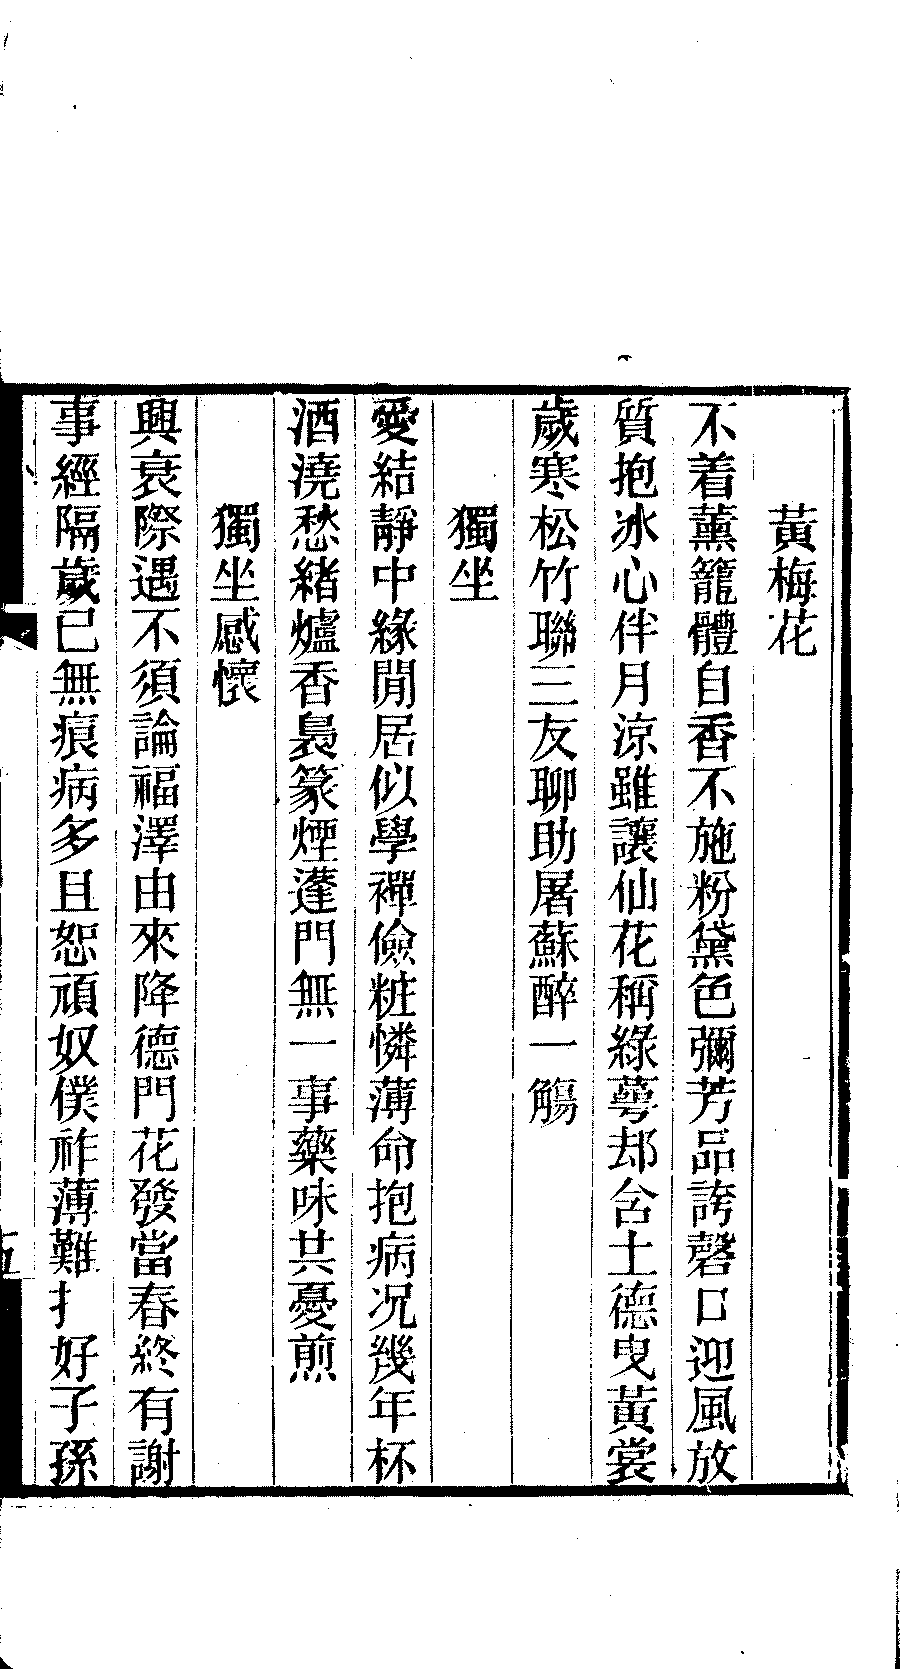 黃梅花
不着薰籠體自香不施粉黛色彌芳品誇磬口迎風放
質抱冰心伴月涼雖讓仙花稱綠萼却含土德曳黃裳
歲寒松竹聯三友聊助屠蘇醉一觴
獨坐
愛結靜中緣閒居似學禪儉粧憐薄命抱病况幾年杯
酒澆愁緒爐香裊篆煙蓬門無一事藥味共憂煎
獨坐感懷
興衰際遇不須論福澤由來降德門花發當春終有謝
事經隔歲已無痕病多且恕頑奴僕祚薄難扌好子孫
五